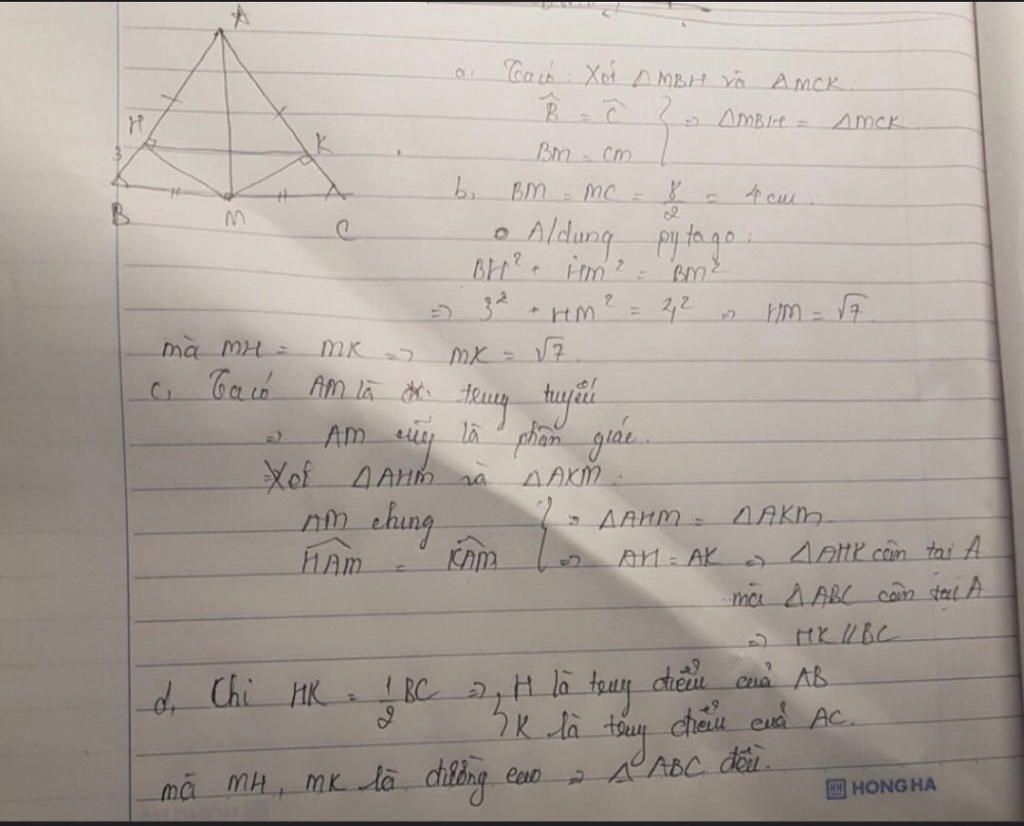 A
H
K
3
B
M
C
a, Ta có: Xét ΔMBH và ΔMCK.
B̂ = Ĉ
BM = CM } => ΔMBH = ΔMCK
b, BM = MC = 8/2 = 4cm.
A/dụng pytago:
BH² + HM² = BM²
=> 3² + HM² = 4² => HM = √7.
mà MH = MK => MK = √7.
c, Ta có AM là trung tuyến
=> AM cũng là phân giác.
Xét ΔAHM và ΔAKM.
AM chung } => ΔAHM = ΔAKM.
HAM = KAM => AH = AK => ΔAHK cân tại A
mà ΔABC cân tại A
=> HK // BC
d, Chi HK = 1/2 BC => H là trung điểm của AB
K là trung điểm của AC.
mà MH, MK là đường cao => Δ ABC đều.
HONG HA